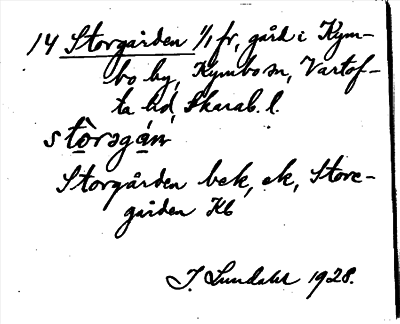 14 Storgården 1/1 fr, gård i Kym-
bo by, Kymbo sn, Vartof-
ta hd, Skarab. l.
stòrǝgán
Storgården bek, ek, Store-
gården Kb
J. Lundahl 1928.